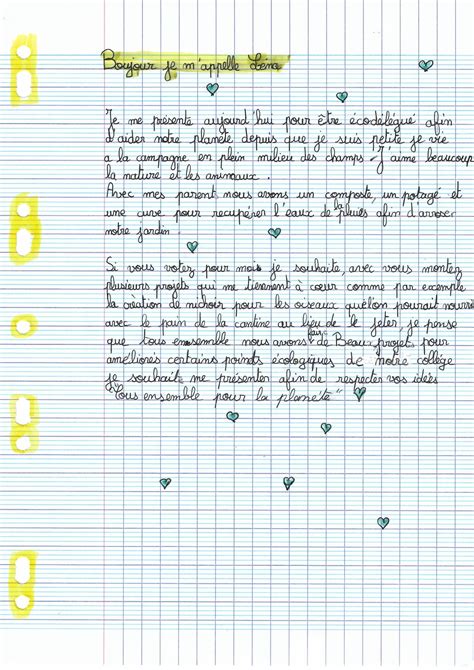 Bonjour je m'appelle Léna
Je me présente aujourd'hui pour être écodélégué afin
d'aider notre planète depuis que je suis petite je vie
a la campagne en plein milieu des champs. J'aime beaucoup
la nature et les animaux.
Avec mes parent nous avons un composte, un potagé et
une cuve pour recupérer l'eaux de la pluies afin d'arroser
notre jardin.
Si vous votez pour moi je souhaite, avec vous montez
plusieurs projets qui me tiennent à cœur comme par exemple
la création de nichoir pour les oiseaux quel'on pourait nourrir
avec le pain de la cantine au lieu de le jeter, je pense
que tous ensemble nous avons de Beau projets pour
améliores certains points écologiques de notre collège
je souhaite me présenter afin de respecter vos idées
"Tous ensemble pour la planete"